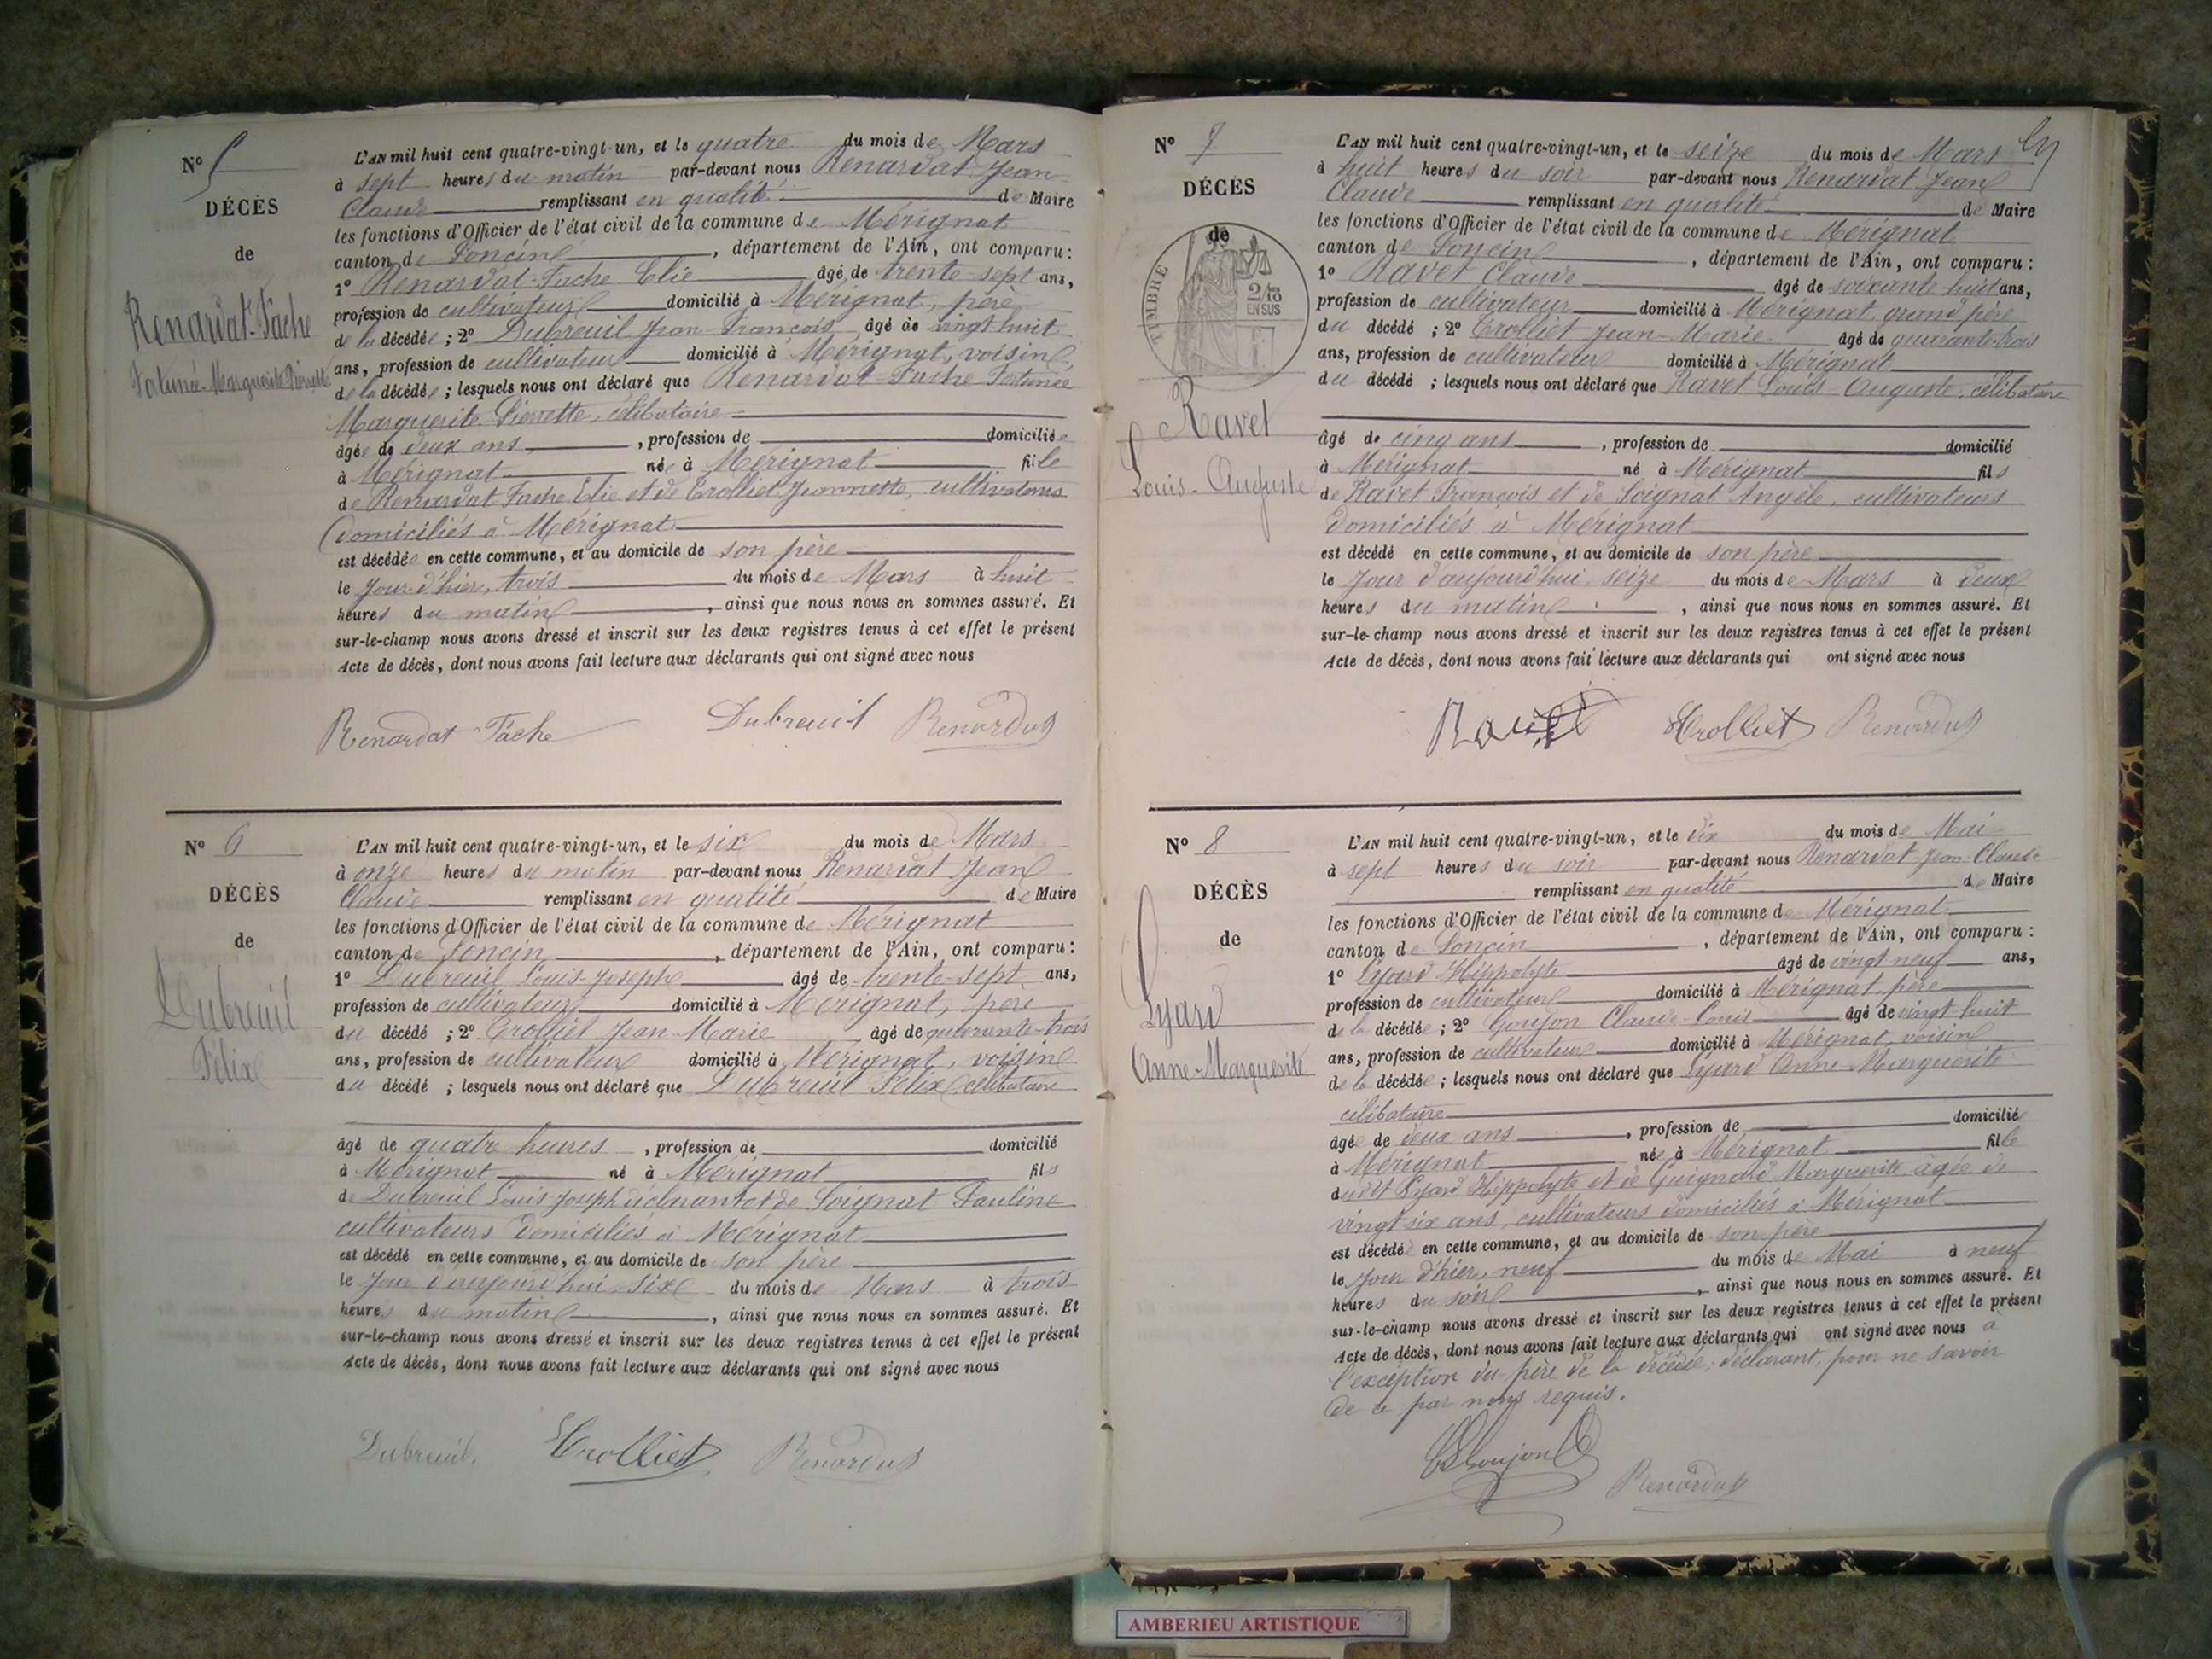 N° 5
DÉCÈS
de
Renardat-Fache
Fortunée-Marguerite Pierrette
L'AN mil huit cent quatre-vingt-un, et le quatre du mois de Mars
à sept heures du matin par-devant nous Renardat Jean
Claude remplissant en qualité de Maire
les fonctions d'Officier de l'état civil de la commune de Mérignat
canton de Poncin, département de l'Ain, ont comparu:
1° Renardat-Fache Elie âgé de trente-sept ans,
profession de cultivateur domicilié à Mérignat, père
de la décédée; 2° Dubreuil Jean-François âgé de vingt huit
ans, profession de cultivateur domicilié à Mérignat, voisin
de la décédée; lesquels nous ont déclaré que Renardat-Fache Fortunée
Marguerite-Pierrette, célibataire
âgée de deux ans, profession de domiciliée
à Mérignat née à Mérignat fille
de Renardat Fache Elie et de Trolliet Jeannette, cultivateurs
domiciliés à Mérignat
est décédée en cette commune, et au domicile de son père
le jour d'hier, trois du mois de Mars à huit
heures du matin, ainsi que nous nous en sommes assuré. Et
sur-le-champ nous avons dressé et inscrit sur les deux registres tenus à cet effet le présent
Acte de décès, dont nous avons fait lecture aux déclarants qui ont signé avec nous
Renardat Fache Dubreuil Renardat
N° 6
DÉCÈS
de
Dubreuil
Félix
L'AN mil huit cent quatre-vingt-un, et le six du mois de Mars
à onze heures du matin par-devant nous Renardat Jean
Claude remplissant en qualité de Maire
les fonctions d'Officier de l'état civil de la commune de Mérignat
canton de Poncin, département de l'Ain, ont comparu:
1° Dubreuil Louis-Joseph âgé de trente-sept ans,
profession de cultivateur domicilié à Mérignat, père
du décédé; 2° Trolliet Jean-Marie âgé de quarante-trois
ans, profession de cultivateur domicilié à Mérignat, voisin
du décédé; lesquels nous ont déclaré que Dubreuil Félix, célibataire
âgé de quatre heures, profession de domicilié
à Mérignat né à Mérignat fils
de Dubreuil Louis-Joseph déclarant et de Soignat Pauline
cultivateurs domiciliés à Mérignat
est décédé en cette commune, et au domicile de son père
le jour d'aujourd'hui six du mois de Mars à trois
heures du matin, ainsi que nous nous en sommes assuré. Et
sur-le-champ nous avons dressé et inscrit sur les deux registres tenus à cet effet le présent
Acte de décès, dont nous avons fait lecture aux déclarants qui ont signé avec nous
Dubreuil. Trolliet Renardat
N° 7
DÉCÈS
de
TIMBRE
2/10
EN SUS
Ravet
Louis-Auguste
L'AN mil huit cent quatre-vingt-un, et le seize du mois de Mars
à huit heures du soir par-devant nous Renardat Jean
Claude remplissant en qualité de Maire
les fonctions d'Officier de l'état civil de la commune de Mérignat
canton de Poncin, département de l'Ain, ont comparu:
1° Ravet Claude âgé de soixante huit ans,
profession de cultivateur domicilié à Mérignat grand père
du décédé; 2° Trolliet Jean-Marie âgé de quarante-trois
ans, profession de cultivateur domicilié à Mérignat
du décédé; lesquels nous ont déclaré que Ravet Louis-Auguste, célibataire
âgé de cinq ans, profession de domicilié
à Mérignat né à Mérignat fils
de Ravet François et de Soignat Angèle, cultivateurs
domiciliés à Mérignat
est décédé en cette commune, et au domicile de son père
le jour d'aujourd'hui seize du mois de Mars à deux
heures du matin, ainsi que nous nous en sommes assuré. Et
sur-le-champ nous avons dressé et inscrit sur les deux registres tenus à cet effet le présent
Acte de décès, dont nous avons fait lecture aux déclarants qui ont signé avec nous
Ravet Trolliet Renardat
N° 8
DÉCÈS
de
Lyard
Anne-Marguerite
L'AN mil huit cent quatre-vingt-un, et le dix du mois de Mai
à sept heures du soir par-devant nous Renardat Jean-Claude
remplissant en qualité de Maire
les fonctions d'Officier de l'état civil de la commune de Mérignat
canton de Poncin, département de l'Ain, ont comparu:
1° Lyard Hippolyte âgé de vingt neuf ans,
profession de cultivateur domicilié à Mérignat, père
de la décédée; 2° Goujon Claude-Louis âgé de vingt huit
ans, profession de cultivateur domicilié à Mérignat, voisin
de la décédée; lesquels nous ont déclaré que Lyard Anne-Marguerite
célibataire
âgée de deux ans, profession de domiciliée
à Mérignat née à Mérignat fille
dudit Lyard Hippolyte et de Guignard Marguerite âgée de
vingt-six ans, cultivateurs domiciliés à Mérignat
est décédée en cette commune, et au domicile de son père
le jour d'hier, neuf du mois de Mai à neuf
heures du soir, ainsi que nous nous en sommes assuré. Et
sur-le-champ nous avons dressé et inscrit sur les deux registres tenus à cet effet le présent
Acte de décès, dont nous avons fait lecture aux déclarants qui ont signé avec nous à
l'exception du père de la décédée, déclarant, pour ne savoir
de ce par nous requis.
Goujon Renardat
AMBERIEU ARTISTIQUE